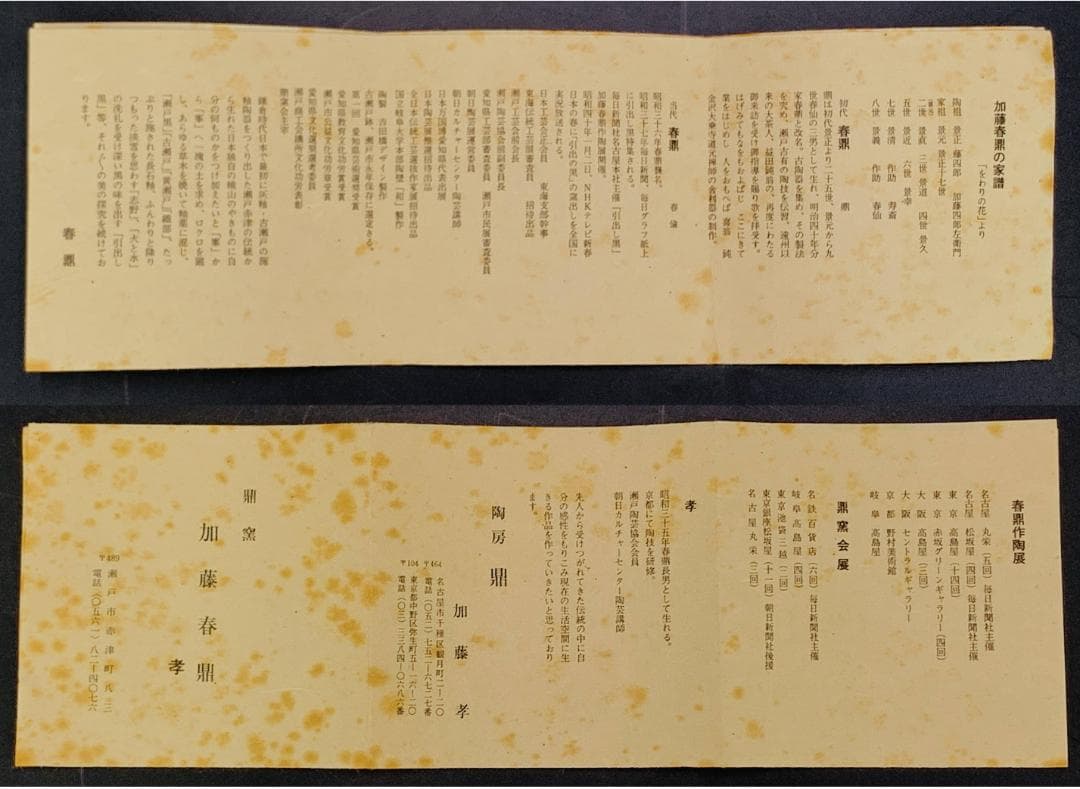 加藤春鼎の家譜
「をわりの花」より
陶祖 景正 藤四郎 加藤四郎左衛門
家祖 景元 景正十七世
二世 景直 三世 景道 四世 景久
五世 景近 六世 景幸
七世 景清 作助 寿斎
八世 景義 作助 春仙
初代 春鼎 鼎
鼎は初代景正より二十五世、景元から九
世春仙の三男として生れ、明治四十年分
家春鼎と改名。古陶器を集め、その製法
を究め、瀬戸古有の陶技を伝習、遠州以
来の大茶人、益田鈍翁の、再度にわたる
御来訪を受け御指導を賜り歌を拝受す。
はげみてもなをもおよばじ ここにきて
業をはじめし 人をおもへば 斎翁 鈍
金沢大乗寺道元禅師の舎利器の制作。
当代 春鼎 春倫
昭和三十六年春鼎襲名。
昭和三十七年毎日新聞、毎日グラフ紙上
に引出し黒特集される。
毎日新聞社名古屋本社主催「引出し黒」
加藤春鼎作陶展開催。
昭和四十年一月二日、NHKテレビ新春
日本の春に「引出の黒」の窯出しを全国に
実況放送される。
日本工芸会正会員 東海支部幹事
東海伝統工芸展審査員 招待出品
瀬戸工芸会前会長
瀬戸陶芸協会前副委員長
愛知県芸術展審査委員 瀬戸市民展審査委員
朝日陶芸展運営委員
朝日カルチャーセンター陶芸講師
日本万国博愛知県代表出展
日本陶芸展推選招待出品
全日本伝統工芸選抜作家展招待出品
国立岐阜大学本部陶壁「和」製作
陶製 吉田橋デザイン
古瀬戸釉 瀬戸市永年保存に選定さる。
第一回 愛知県芸術選奨受賞
愛知県教育文化功労賞受賞
瀬戸市公益文化功労章受賞
愛知県文化選奨選考委員
瀬戸商工会議所文化功労表彰
鼎窯会主宰
鎌倉時代日本で最初に灰釉・古瀬戸の施
釉陶器をつくり出した瀬戸赤津の伝統か
ら生れた日本独自の桃山のやきものに自
分の何ものかをつけ加えたいと「夢」か
ら「夢」へ一塊の土を求め、ロクロを廻
し、あらゆる草木を焼いて釉薬に混じ、
「瀬戸黒」「古瀬戸」「黄瀬戸」「織部」、たっ
ぷりと施された長石釉、ふんわりと降り
つもった淡雪を思わす「志野」、「火と水」
の洗礼を受け深い黒の味を出す「引出し
黒」等、それぞれの美の探究を続けてお
ります。
春鼎
春鼎作陶展
名古屋 丸栄(五回)毎日新聞社主催
名古屋 松坂屋(四回)毎日新聞社主催
東京 高島屋(十四回)
東京 赤坂グリーンギャラリー(四回)
大阪 高島屋(三回)
大阪 セントラルギャラリー
京都 野村美術館
岐阜 高島屋
鼎窯会展
名鉄百貨店(六回)毎日新聞社主催
岐阜高島屋(四回)
東京池袋三越(二回)
東京銀座松坂屋(十一回)朝日新聞社後援
名古屋丸栄(二回)
孝
昭和三十五年春鼎長男として生れる。
京都にて陶技を研修。
瀬戸陶芸協会会員
朝日カルチャーセンター陶芸講師
先人から受けつがれてきた伝統の中に自
分の感性をもりこみ現在の生活空間に生
きる作品を作っていきたいと思っており
ます。
陶房鼎
加藤孝
〒464 名古屋市千種区観月町二-二〇
電話(〇五二)七五二-六七二七番
〒104 東京都中野区弥生町五-一六-二〇
電話(〇三)三三八四-〇六八六番
鼎窯
加藤春鼎
孝
〒489 瀬戸市赤津町八三
電話(〇五六一)八二-四〇七六